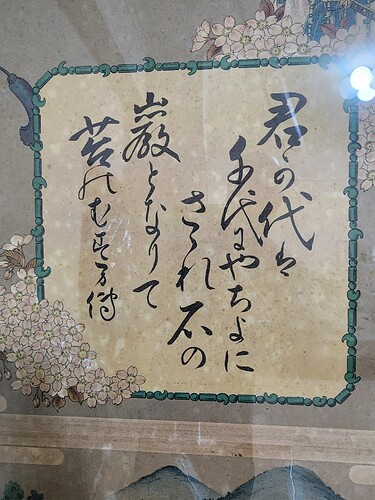 君か代は
千代にやちよに
さゝれ石の
巌となりて
苔のむす万傳